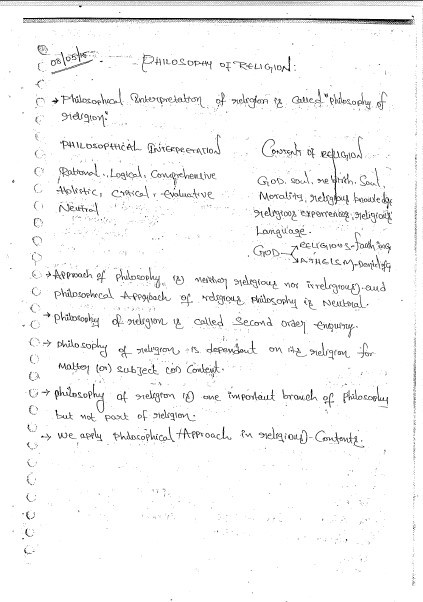 08/05/15
PHILOSOPHY OF RELIGION:
→ Philosophical Interpretation of religion is called "philosophy of
religion."
PHILOSOPHICAL INTERPRETATION
CONTENT OF RELIGION
Rational, Logical, Comprehensive
Holistic, Critical, Evaluative
Neutral
GOD, soul, rebirth, Soul,
Morality, religious knowledge
religious experiences, religious
Language.
GOD RELIGIOUS - faith in g
ATHEISM - Denial of g
→ Approach of philosophy is neither religious nor irreligious and
philosophical Approach of religious philosophy is Neutral.
→ philosophy of religion is called Second order enquiry.
→ philosophy of religion is dependent on the religion for
Matter (or) subject (or) Content.
→ philosophy of religion is one important branch of philosophy
but not part of religion.
→ We apply philosophical Approach in religious Contents.